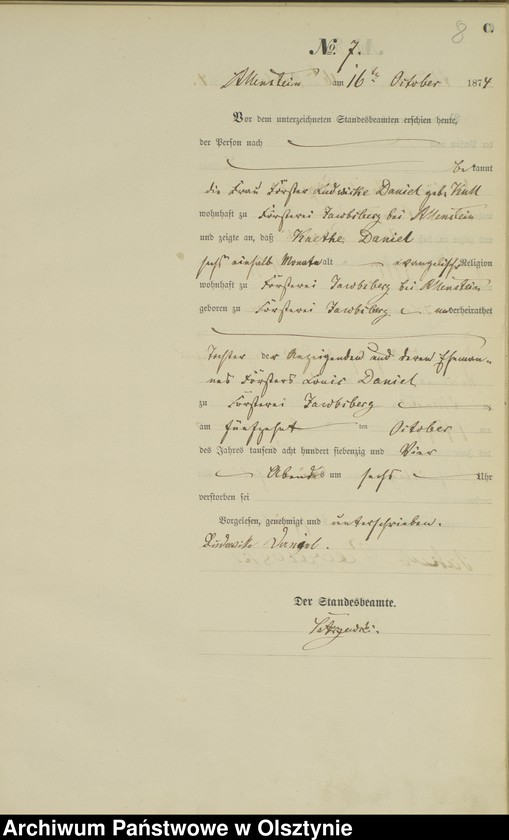 8 C.
No. 7.
Allenstein am 16ten October 1874
Vor dem unterzeichneten Standesbeamten erschien heute,
der Person nach
bekannt
die Frau Förster Ludwicke Daniel geb.
wohnhaft zu Försterei Jacobsberg bei Allenstein
und zeigte an, daß Kaethe Daniel
sechs einhalb Monate alt evangelischer Religion
wohnhaft zu Försterei Jacobsberg bei Allenstein
geboren zu Försterei Jacobsberg unverheirathet
Tochter der Anzeigenden und deren Eheman-
nes Försters Louis Daniel
zu Försterei Jacobsberg
am fünfzehnten October
des Jahres tausend acht hundert siebenzig und Vier
Abends um sechs Uhr
verstorben sei
Vorgelesen, genehmigt und unterschrieben.
Ludowike Daniel.
Der Standesbeamte.
Archiwum Państwowe w Olsztynie